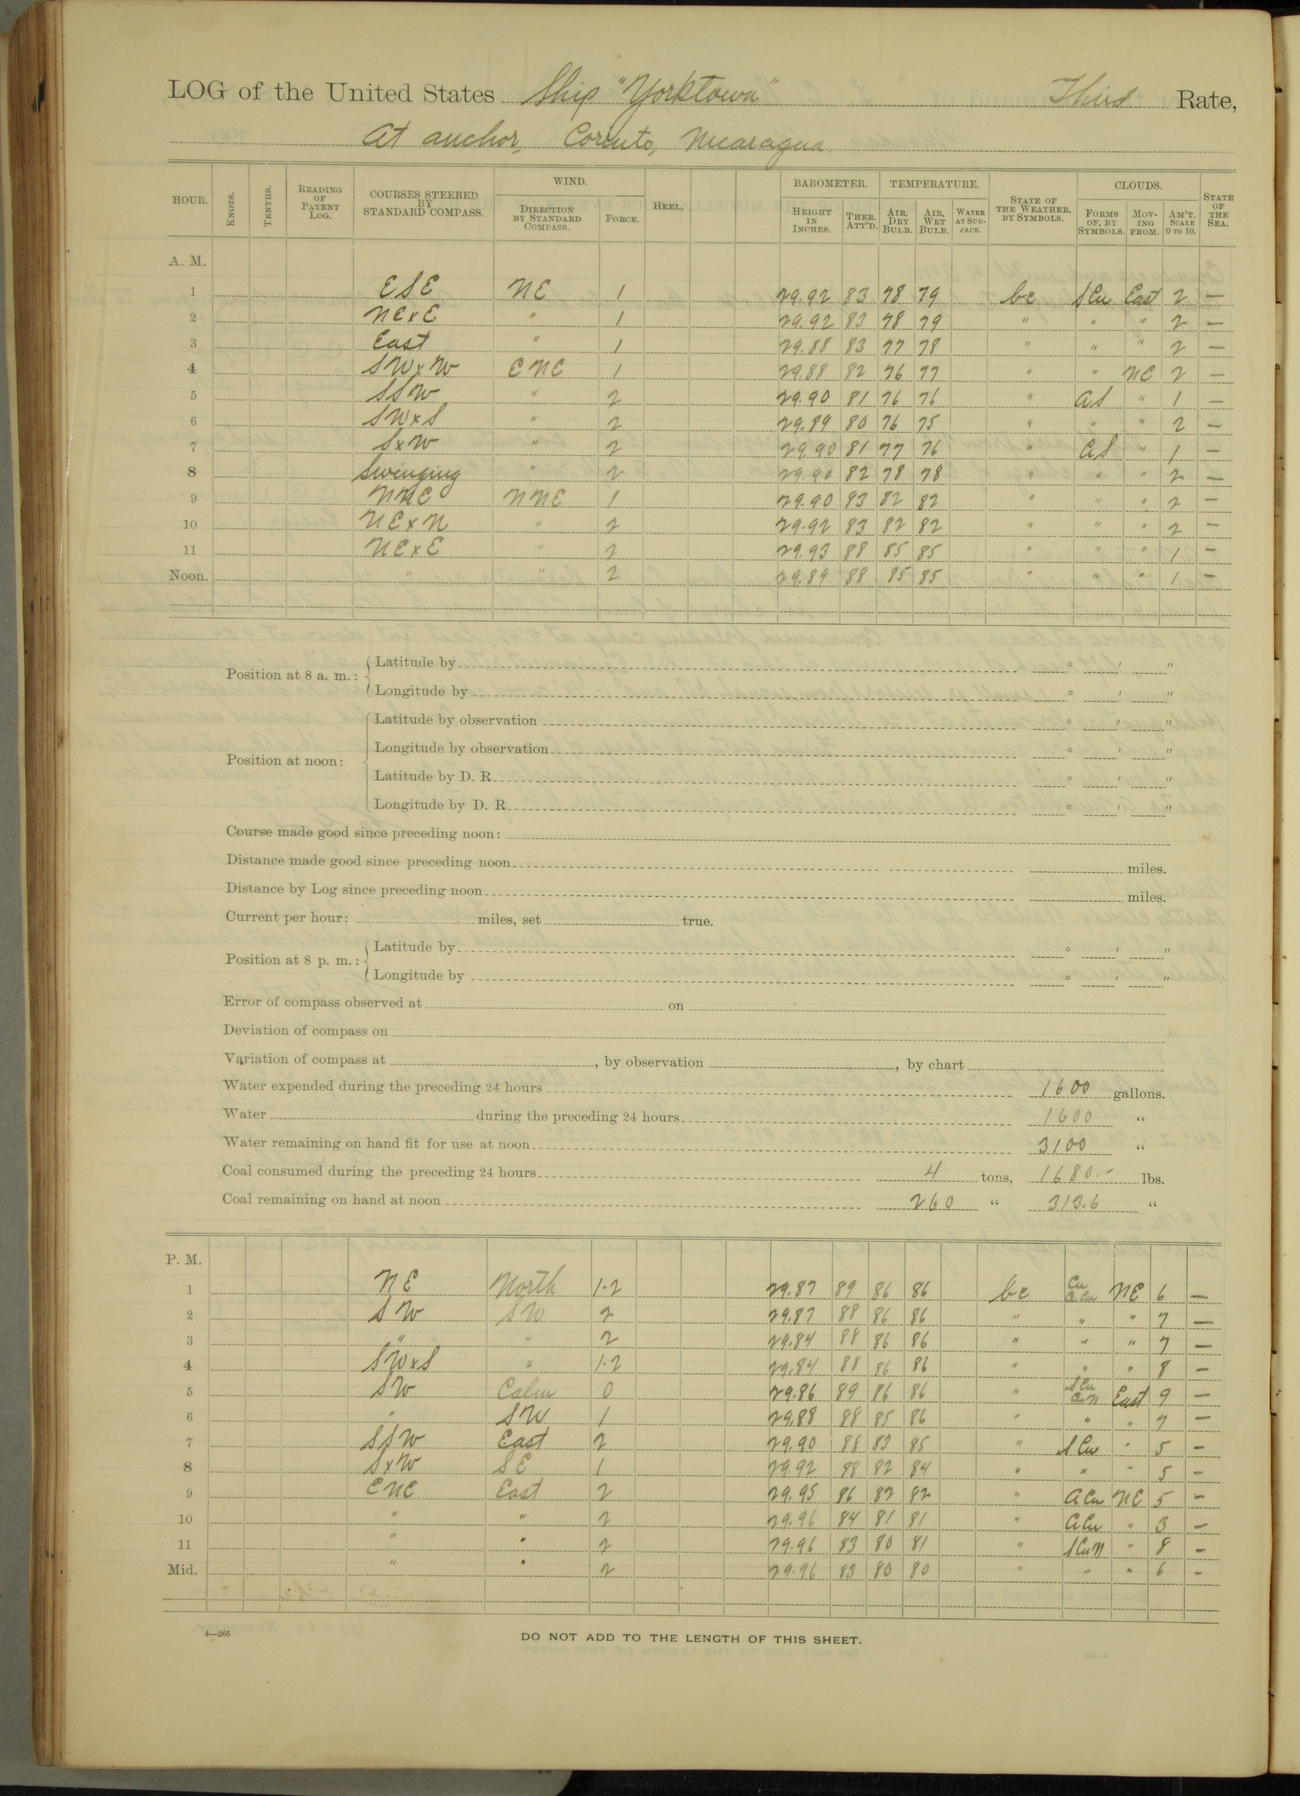 LOG of the United States Ship "Yorktown" Third Rate,
At anchor, Corinto, Nicaragua.
HOUR. KNOTS. TENTHS. READING OF PATENT LOG. COURSES STEERED BY STANDARD COMPASS. WIND. DIRECTION BY STANDARD COMPASS. FORCE. HEEL. BAROMETER. HEIGHT IN INCHES. THER. ATT'D. TEMPERATURE. AIR, DRY BULB. AIR, WET BULB. WATER AT SUR-FACE. STATE OF THE WEATHER, BY SYMBOLS. CLOUDS. FORMS OF, BY SYMBOLS. MOV-ING FROM. AM'T. SCALE 0 TO 10. STATE OF THE SEA.
A. M.
1 ESE NE 1 29.92 83 78 79 bc SCu East 2 —
2 NExE " 1 29.92 83 78 79 " " " 2 —
3 East " 1 29.88 83 77 78 " " " 2 —
4 SWxW ENE 1 29.88 82 76 77 " " NE 2 —
5 SSW " 2 29.90 81 76 76 " AS " 1 —
6 SWxS " 2 29.89 80 76 75 " " " 2 —
7 SxW " 2 29.90 81 77 76 " AS " 1 —
8 Swinging " 2 29.90 82 78 78 " " " 2 —
9 NNE NNE 1 29.90 83 82 82 " " " 2 —
10 NExN " 2 29.92 83 82 82 " " " 2 —
11 NExE " 2 29.93 88 85 85 " " " 1 —
Noon. " " 2 29.89 88 85 85 " " " 1 —
Position at 8 a. m.: Latitude by ° ' "
Longitude by ° ' "
Position at noon: Latitude by observation ° ' "
Longitude by observation ° ' "
Latitude by D. R. ° ' "
Longitude by D. R. ° ' "
Course made good since preceding noon:
Distance made good since preceding noon miles.
Distance by Log since preceding noon miles.
Current per hour: miles, set true.
Position at 8 p. m.: Latitude by ° ' "
Longitude by ° ' "
Error of compass observed at on
Deviation of compass on
Variation of compass at , by observation , by chart
Water expended during the preceding 24 hours 1600 gallons.
Water during the preceding 24 hours 1600 "
Water remaining on hand fit for use at noon 3100 "
Coal consumed during the preceding 24 hours 4 tons, 1680.- lbs.
Coal remaining on hand at noon 260 " 313.6 "
P. M.
1 NE North 1-2 29.87 89 86 86 bc Cu NE 6 —
2 SW SW 2 29.87 88 86 86 " " " 7 —
3 " " 2 29.84 88 86 86 " " " 7 —
4 SWxS " 1-2 29.84 88 86 86 " " " 8 —
5 SW Calm 0 29.86 89 86 86 " SCu CuN East 9 —
6 " SW 1 29.88 88 85 86 " " " 7 —
7 SSW East 2 29.90 88 83 85 " SCu " 5 —
8 SxW SE 1 29.92 88 82 84 " " " 5 —
9 ENE East 2 29.95 86 82 82 " ACu NE 5 —
10 " " 2 29.96 84 81 81 " ACu " 3 —
11 " " 2 29.96 83 80 81 " SCuN " 8 —
Mid. " " 2 29.96 83 80 80 " " " 6 -
4—265
DO NOT ADD TO THE LENGTH OF THIS SHEET.